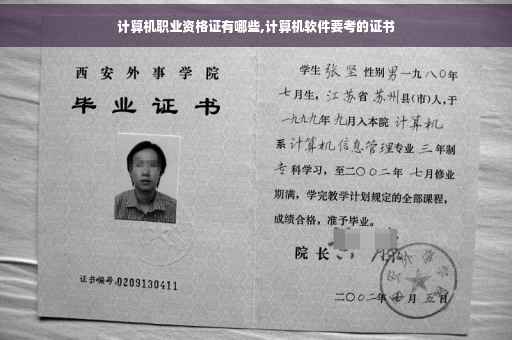 计算机职业资格证有哪些,计算机软件要考的证书
西安外事学院
毕业证书
证书编号:0209130411
学生 张坚 性别 男 一九八〇年
七月生，江苏省 苏州县(市)人,于
一九九九年 九月入本院 计算机
系 计算机信息管理专业 三 年制
专科学习，至二〇〇二年 七月修业
期满，学完教学计划规定的全部课程，
成绩合格，准予毕业。
院长
二〇〇二年 月 五日